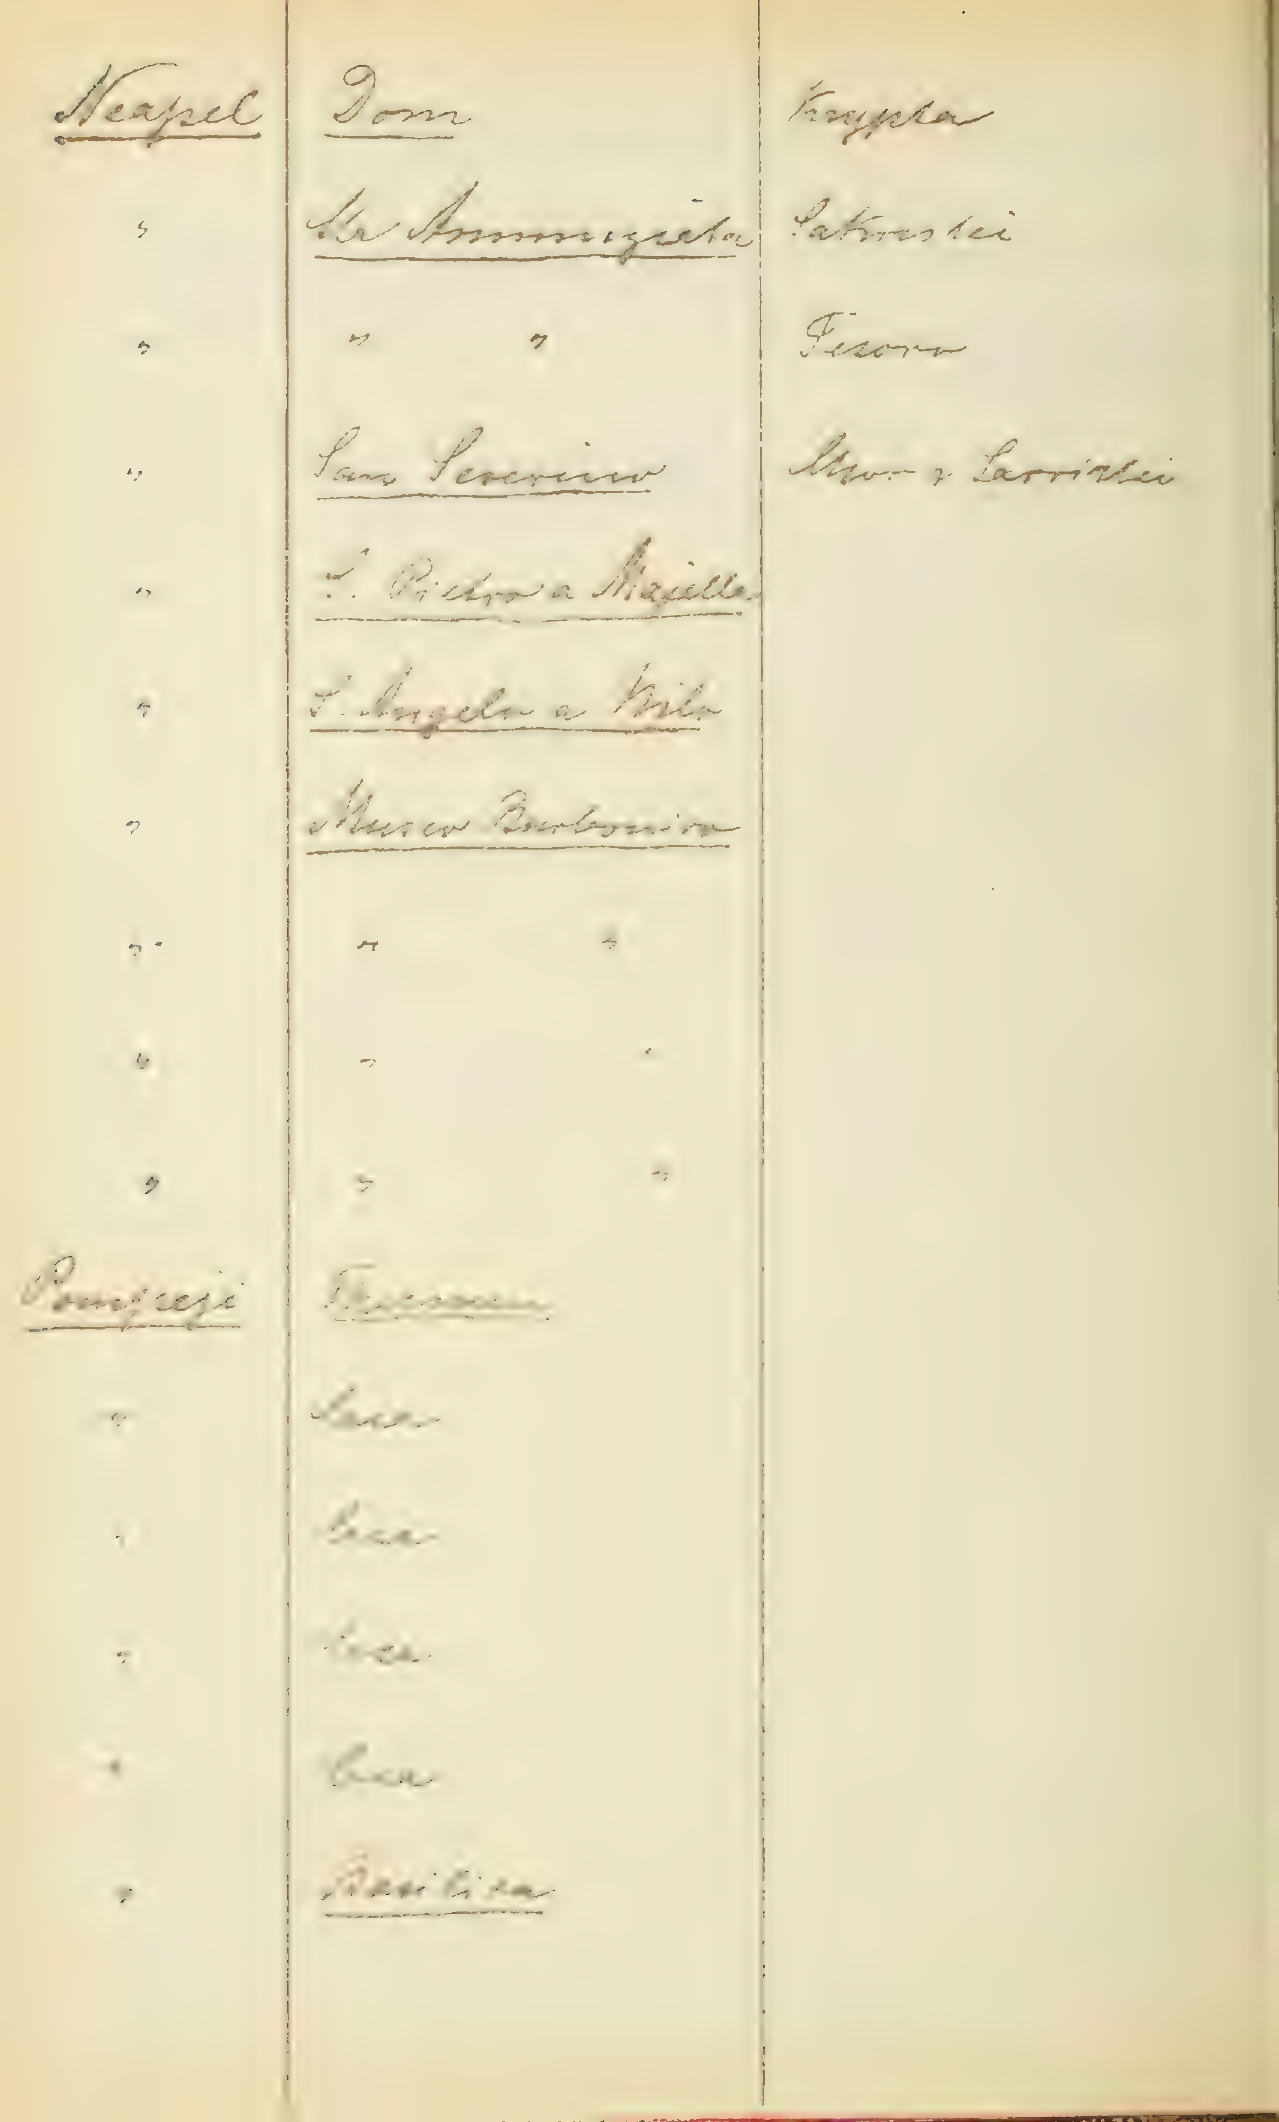 Neapel Dom Krypta
" Sta Annunziata Sakristei
" " " Tesoro
" San Severino Chor & Sacristei
" S. Pietro a Majella
" S. Angelo a Nilo
" Museo Borbonico
" " "
" " "
" " "
Pompeji Thermen
" Casa
" Casa
" Casa
" Casa
" Basilica